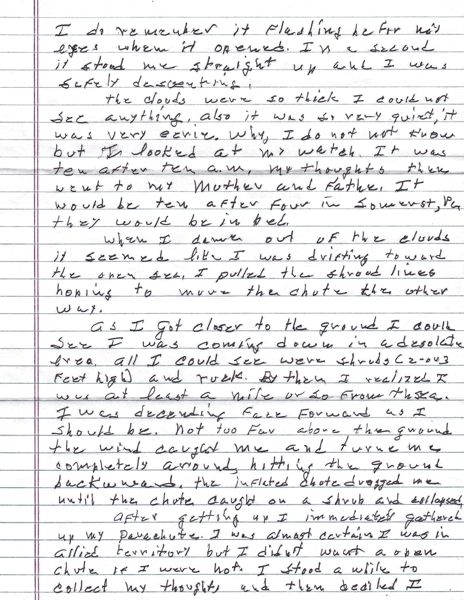 I do remember it flashing befor my
eyes when it opened. In a second
it stood me straight up and I was
safely descenting.
The clouds were so thick I could not
see anything, also it was so very quiet, it
was very eerie. Why, I do not not know
but I looked at my watch. It was
ten after ten a.m. my thoughts then
went to my Mother and Father. It
would be ten after four in Somerset, Pa
they would be in bed.
When I came out of the clouds
it seemed like I was drifting toward
the open sea. I pulled the shroud lines
hoping to move the chute the other
way.
As I got closer to the ground I could
see I was coming down in a desolate
area all I could see were shrubs (2-or3
feet high) and rock. By then I realized I
was at least a mile or so from the sea.
I was decending face forward as I
should be. Not too far above the ground
the wind caught me and turne me
completely around, hitting the ground
backwards, the inflated chute dragged me
until the chute caught on a shrub and collapsed.
After getting up I immediately gathered
up my Parachute. I was almost certain I was in
allied territory but I didn't want a open
chute if I were not. I stood a while to
collect my thoughts and then decided I